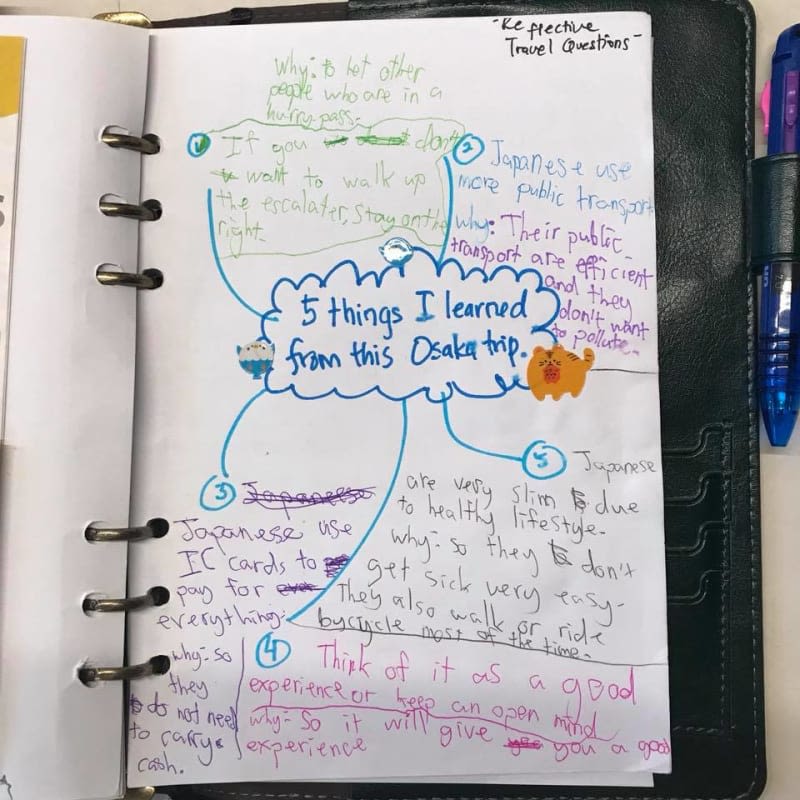 -Reflective
Travel Questions-
why: to let other
people who are in a
hurry pass.
1 If you don't
want to walk up
the escalater, stay on the
right.
2 Japanese use
more public transport
why: Their public
transport are efficient
and they
don't want
to pollute.
5 things I learned
from this Osaka trip.
3
Japanese use
IC cards to
pay for
everything.
why: so
they
do not need
to carry
cash.
5 Japanese
are very slim due
to healthy lifestyle.
why: so they don't
get sick very easy.
They also walk or ride
bycycle most of the time.
4 Think of it as a good
experience or keep an open mind
why: So it will give you a good
experience